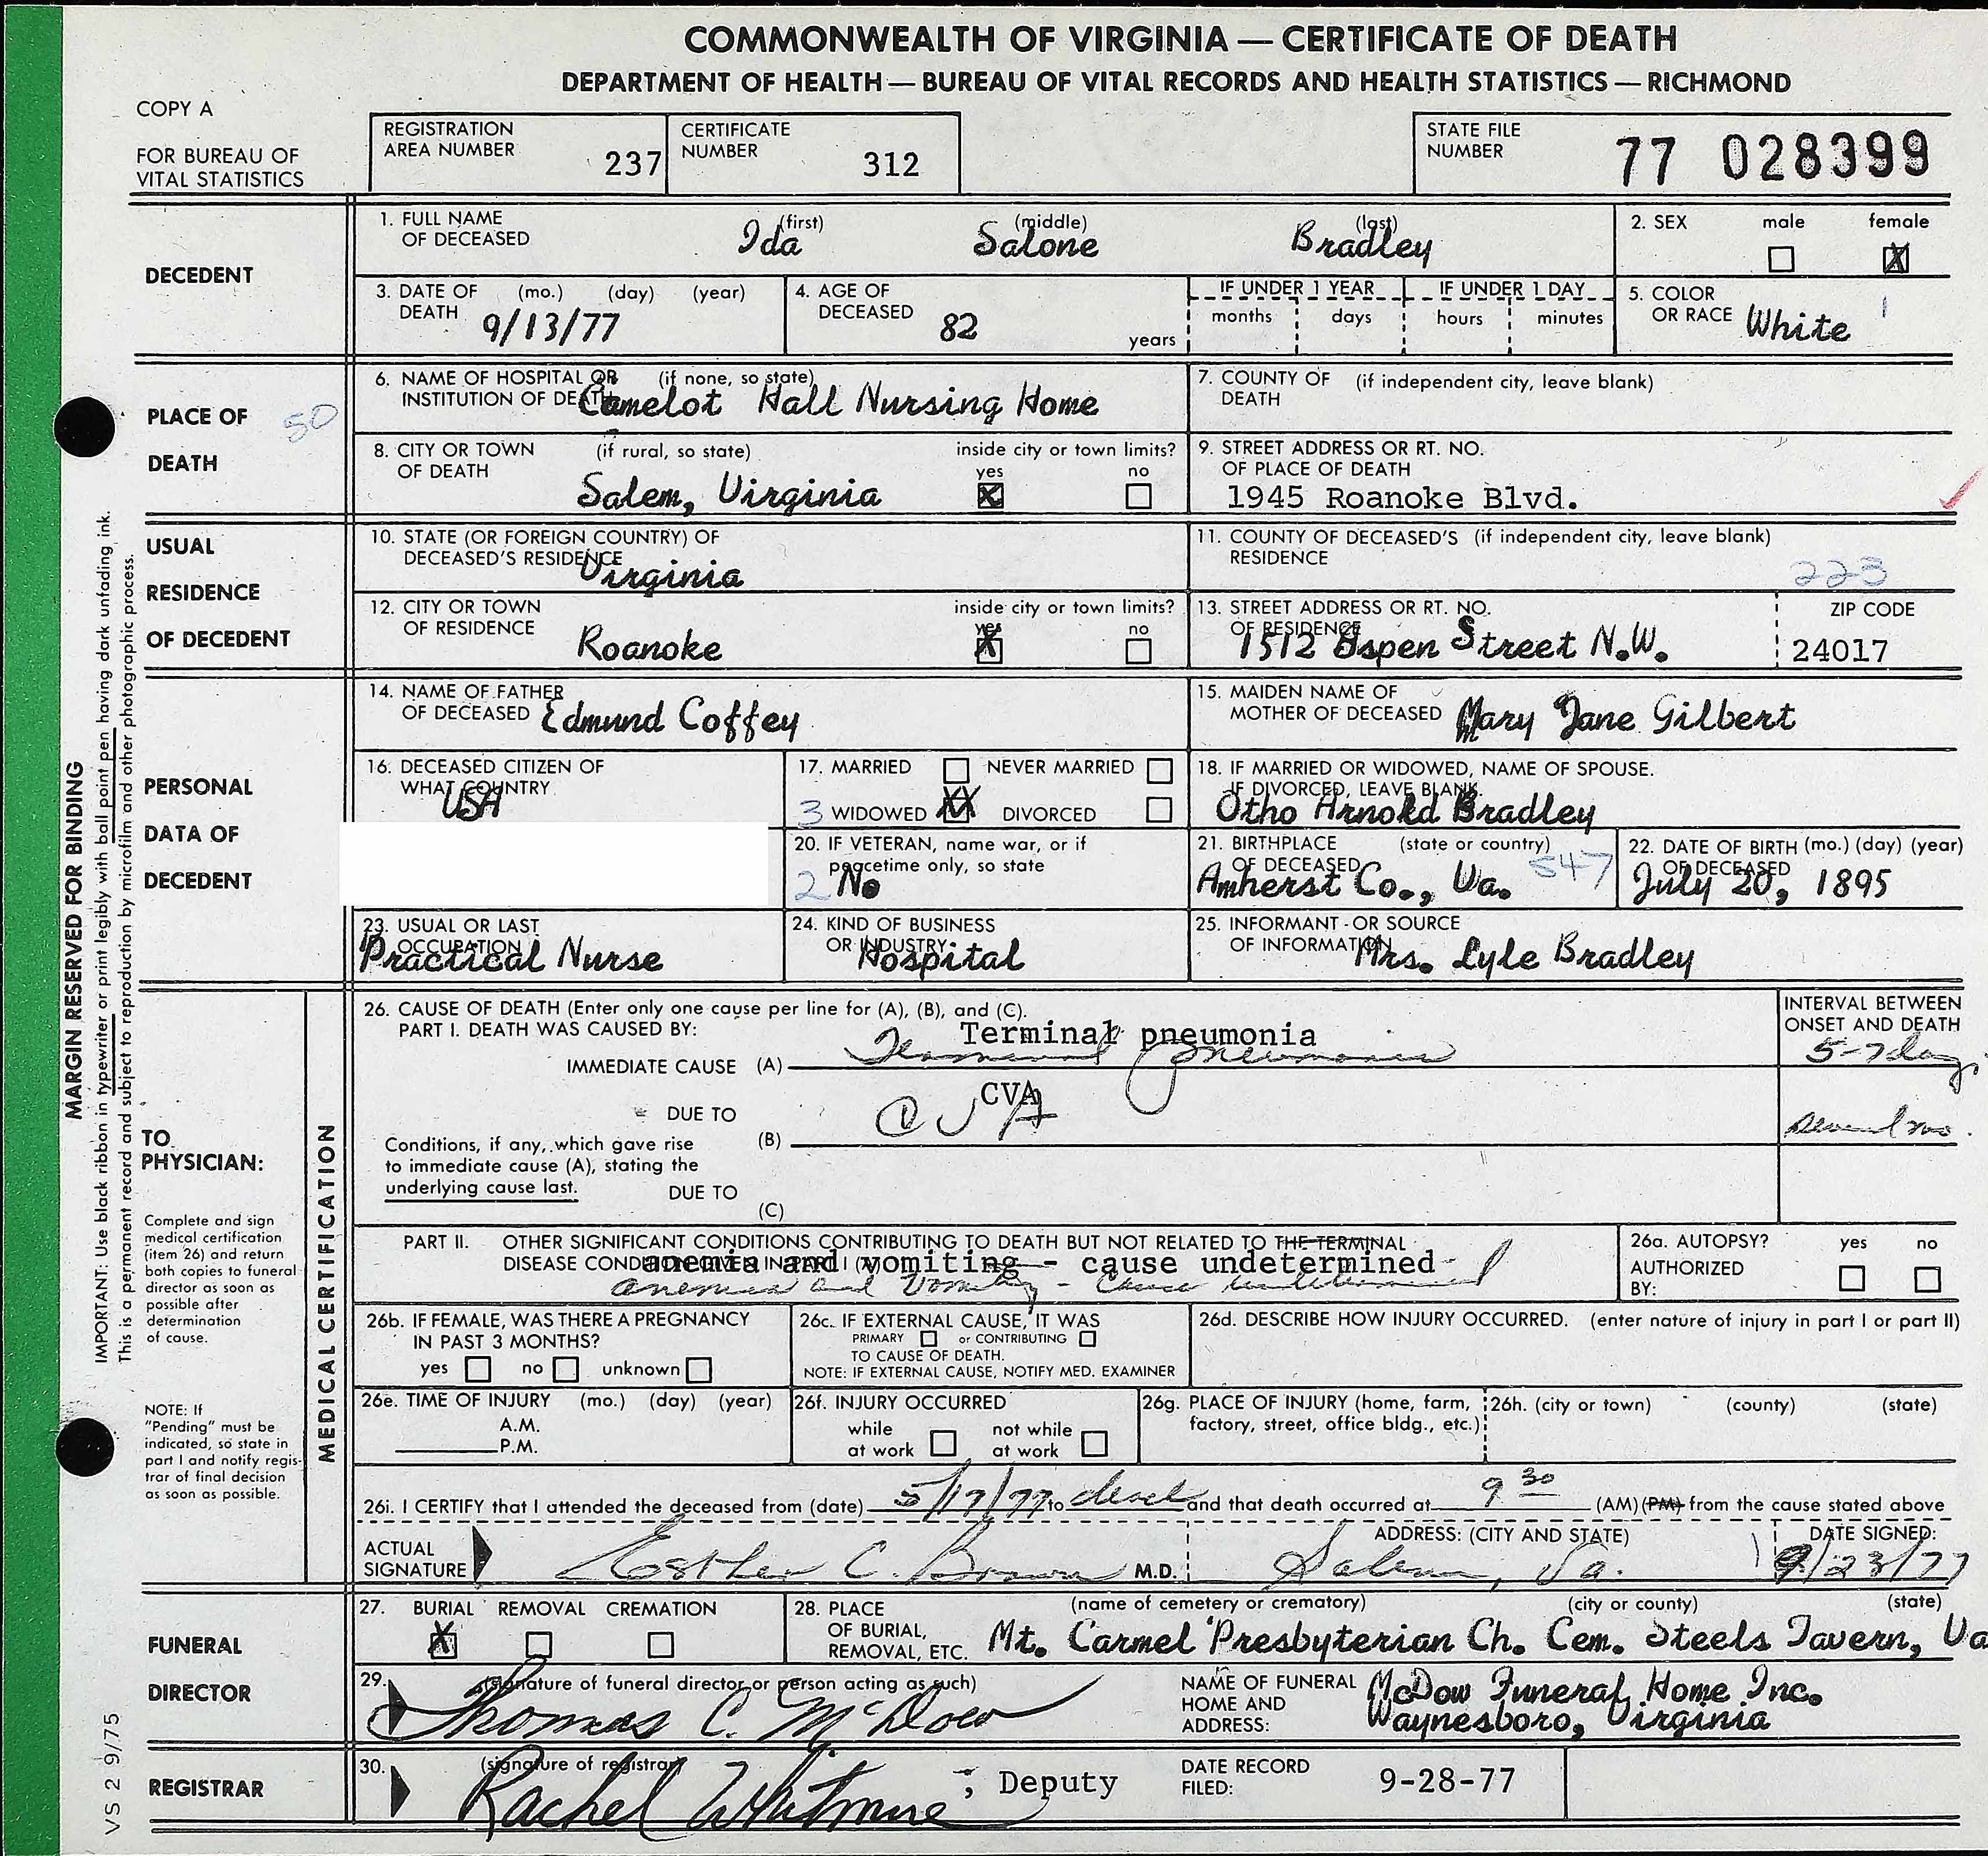 COMMONWEALTH OF VIRGINIA — CERTIFICATE OF DEATH
DEPARTMENT OF HEALTH — BUREAU OF VITAL RECORDS AND HEALTH STATISTICS — RICHMOND
COPY A
FOR BUREAU OF
VITAL STATISTICS
REGISTRATION
AREA NUMBER 237
CERTIFICATE
NUMBER 312
STATE FILE
NUMBER 77 028399
DECEDENT
1. FULL NAME
OF DECEASED
(first) (middle) (last)
Ida Salone Bradley
2. SEX male female X
3. DATE OF (mo.) (day) (year)
DEATH 9/13/77
4. AGE OF
DECEASED 82 years
IF UNDER 1 YEAR IF UNDER 1 DAY
months days hours minutes
5. COLOR
OR RACE White 1
PLACE OF
DEATH
50
6. NAME OF HOSPITAL OR (if none, so state)
INSTITUTION OF DEATH Camelot Hall Nursing Home
7. COUNTY OF (if independent city, leave blank)
DEATH
8. CITY OR TOWN (if rural, so state) inside city or town limits?
OF DEATH yes no
Salem, Virginia X
9. STREET ADDRESS OR RT. NO.
OF PLACE OF DEATH
1945 Roanoke Blvd.
USUAL
RESIDENCE
OF DECEDENT
10. STATE (OR FOREIGN COUNTRY) OF
DECEASED'S RESIDENCE
Virginia
11. COUNTY OF DECEASED'S (if independent city, leave blank)
RESIDENCE
223
12. CITY OR TOWN inside city or town limits?
OF RESIDENCE yes no
Roanoke X
13. STREET ADDRESS OR RT. NO.
OF RESIDENCE
1512 Aspen Street N.W.
ZIP CODE
24017
PERSONAL
DATA OF
DECEDENT
14. NAME OF FATHER
OF DECEASED Edmund Coffey
15. MAIDEN NAME OF
MOTHER OF DECEASED Mary Jane Gilbert
16. DECEASED CITIZEN OF
WHAT COUNTRY
USA
17. MARRIED NEVER MARRIED
3 WIDOWED XX DIVORCED
18. IF MARRIED OR WIDOWED, NAME OF SPOUSE.
IF DIVORCED, LEAVE BLANK.
Otho Arnold Bradley
20. IF VETERAN, name war, or if
peacetime only, so state
2 No
21. BIRTHPLACE (state or country)
OF DECEASED
Amherst Co., Va. 547
22. DATE OF BIRTH (mo.) (day) (year)
OF DECEASED
July 20, 1895
23. USUAL OR LAST
OCCUPATION
Practical Nurse
24. KIND OF BUSINESS
OR INDUSTRY
Hospital
25. INFORMANT - OR SOURCE
OF INFORMATION
Mrs. Lyle Bradley
MARGIN RESERVED FOR BINDING
IMPORTANT: Use black ribbon in typewriter or print legibly with ball point pen having dark unfading ink.
This is a permanent record and subject to reproduction by microfilm and other photographic process.
TO
PHYSICIAN:
Complete and sign
medical certification
(item 26) and return
both copies to funeral
director as soon as
possible after
determination
of cause.
NOTE: If
"Pending" must be
indicated, so state in
part I and notify regis-
trar of final decision
as soon as possible.
MEDICAL CERTIFICATION
26. CAUSE OF DEATH (Enter only one cause per line for (A), (B), and (C).
PART I. DEATH WAS CAUSED BY:
INTERVAL BETWEEN
ONSET AND DEATH
Terminal pneumonia
IMMEDIATE CAUSE (A) Terminal pneumonia 5-7 days
CVA
DUE TO CVA
(B) several mo.
Conditions, if any, which gave rise
to immediate cause (A), stating the
underlying cause last.
DUE TO
(C)
PART II. OTHER SIGNIFICANT CONDITIONS CONTRIBUTING TO DEATH BUT NOT RELATED TO THE TERMINAL
DISEASE CONDITION GIVEN IN PART I (A)
anemia and vomiting - cause undetermined
anemia and vomiting - cause undetermined
26a. AUTOPSY? yes no
AUTHORIZED
BY:
26b. IF FEMALE, WAS THERE A PREGNANCY
IN PAST 3 MONTHS?
yes no unknown
26c. IF EXTERNAL CAUSE, IT WAS
PRIMARY or CONTRIBUTING
TO CAUSE OF DEATH.
NOTE: IF EXTERNAL CAUSE, NOTIFY MED. EXAMINER
26d. DESCRIBE HOW INJURY OCCURRED. (enter nature of injury in part I or part II)
26e. TIME OF INJURY (mo.) (day) (year)
A.M.
P.M.
26f. INJURY OCCURRED
while not while
at work at work
26g. PLACE OF INJURY (home, farm,
factory, street, office bldg., etc.)
26h. (city or town) (county) (state)
26i. I CERTIFY that I attended the deceased from (date) 5/17/77 to and that death occurred at 9 30 (AM) (PM) from the cause stated above
ACTUAL
SIGNATURE Esther C. Brown M.D.
ADDRESS: (CITY AND STATE)
Salem, Va.
DATE SIGNED:
9/23/77
FUNERAL
DIRECTOR
27. BURIAL REMOVAL CREMATION
X
28. PLACE
OF BURIAL,
REMOVAL, ETC.
(name of cemetery or crematory) (city or county) (state)
Mt. Carmel Presbyterian Ch. Cem. Steels Tavern, Va
29. (signature of funeral director or person acting as such)
Thomas C. McDow
NAME OF FUNERAL
HOME AND
ADDRESS:
McDow Funeral Home Inc.
Waynesboro, Virginia
REGISTRAR
30. (signature of registrar)
Rachel Whitmire, Deputy
DATE RECORD
FILED: 9-28-77
VS 2 9/75